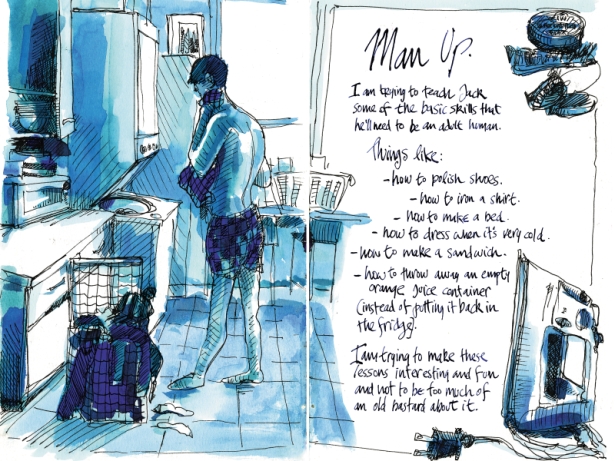 Man Up.
I am trying to teach Jack
some of the basic skills that
he'll need to be an adult human.
Things like:
- how to polish shoes.
- how to iron a shirt.
- how to make a bed.
- how to dress when it's very cold.
- how to make a sandwich.
- how to throw away an empty
orange juice container
(instead of putting it back in
the fridge).
I am trying to make these
lessons interesting and fun
and not to be too much of
an old bastard about it.